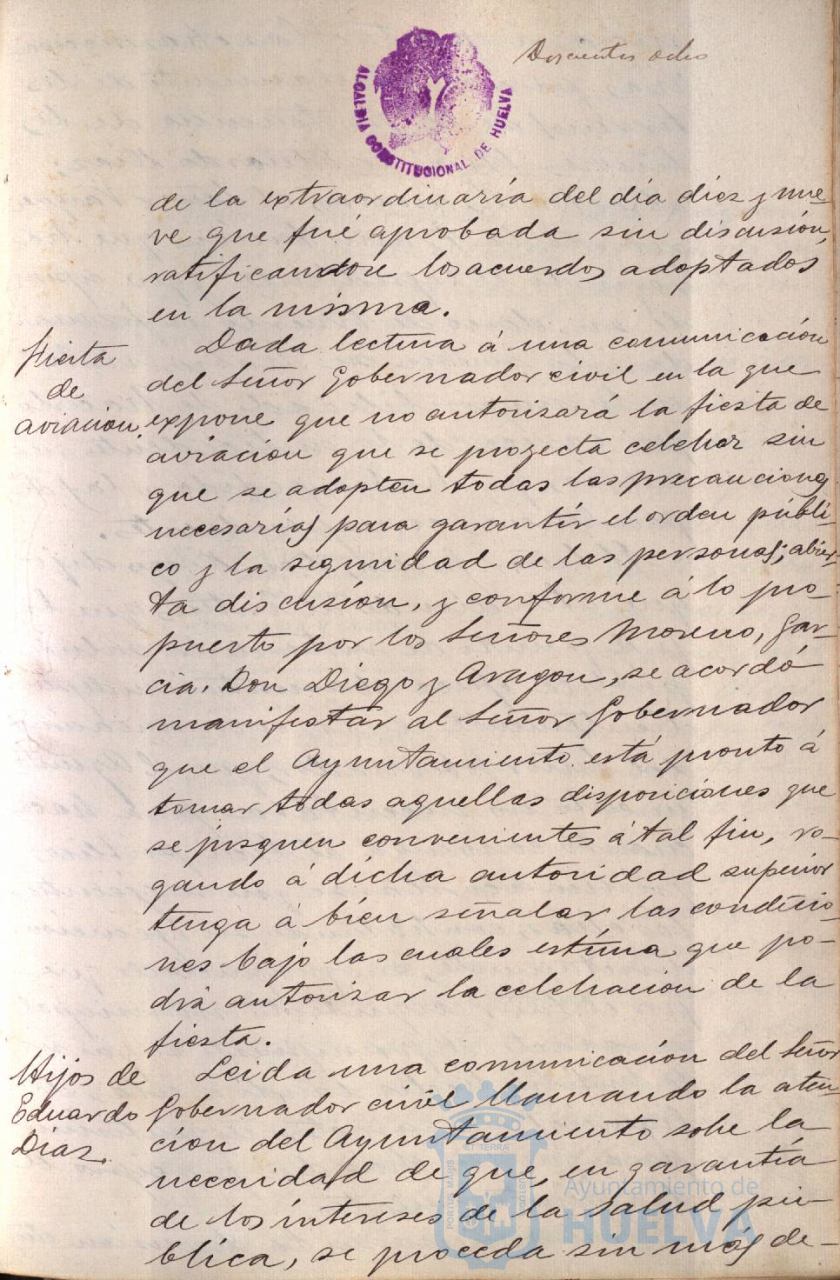 Doscientos ocho
ALCALDIA CONSTITUCIONAL DE HUELVA
de la extraordinaria del dia diez y nue-
ve que fué aprobada sin discusión,
ratificandose los acuerdos adoptados
en la misma.
Fiesta
de
aviacion.
Dada lectura á una comunicación
del Señor Gobernador civil en la que
expone que no autorisará la fiesta de
aviación que se proyecta celebrar sin
que se adopten todas las precauciones
necesarias para garantir el orden públi-
co y la seguridad de las personas; abier-
ta discusión, y conforme á lo pro-
puesto por los Señores Moreno, Gar-
cia. Don Diego y Aragon, se acordó
manifestar al Señor Gobernador
que el Ayuntamiento está pronto á
tomar todas aquellas disposiciones que
se jusguen convenientes á tal fin, ro-
gando á dicha autoridad superior
tenga á bien señalar las condicio-
nes bajo las cuales estima que po-
drá autorizar la celebracion de la
fiesta.
Hijos de
Eduardo
Diaz.
Leida una comunicación del Señor
Gobernador civil llamando la aten-
ción del Ayuntamiento sobre la
necesidad de que, en garantía
de los intereses de la salud pú-
blica, se proceda sin más de-
Ayuntamiento de
HUELVA